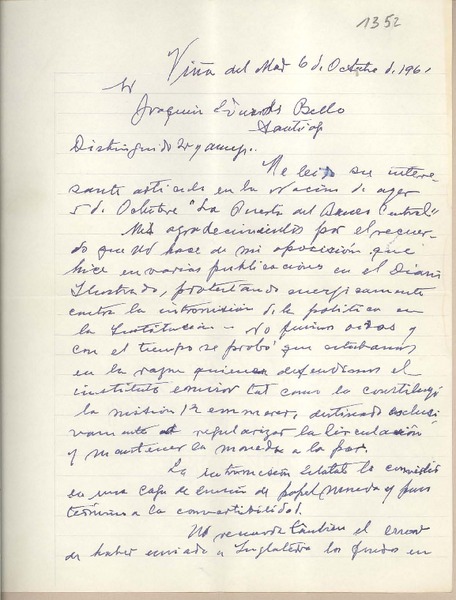 1352
Viña del Mar 6 de Octubre de 1961
Sr
Joaquin Edwards Bello
Santiago
Distinguido Sr y amigo.
He leido su intere-
sante artículo en la Nacion de ayer
5 de Octubre "La Puerta del Banco Central"
Mis agradecimientos por el recuer-
do que Ud hace de mi oposición que
hice en varias publicaciones en el Diario
Ilustrado, protestando energicamente
contra la intromision de la politica en
la Institución - No fuimos oidos y
con el tiempo se probó que estabamos
en la razon quienes defendiamos el
instituto emisor tal como lo constituyó
la misión Kemmerer, destinado exclusi
vamente a regularizar la circulación
y mantener la moneda a la par.
La intromision Estatal lo convirtió
en una caja de emisión de papel moneda y puso
término a la convertibilidad.
Ud recuerda tambien el error
de haber enviado a Inglaterra los fondos en